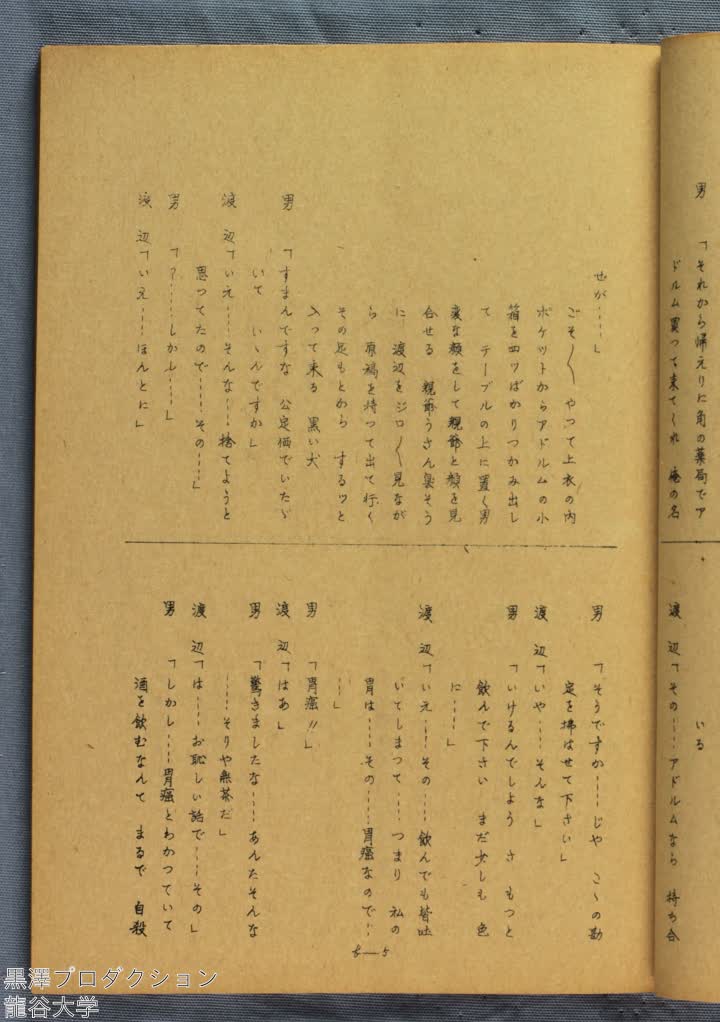 男　「それから帰えりに角の薬局でア
ドルム買つて来てくれ　俺の名
渡　辺「その……アドルムなら　持ち合
いる
せが……」
ごそ〳〵やつて上衣の内
ポケットからアドルムの小
箱を四ツばかりつかみ出し
て　テーブルの上に置く男
変な顔をして親爺と顔を見
合せる　親爺うさん臭そう
に　渡辺をジロ〳〵見なが
ら　原稿を持つて出て行く
その足もとから　するツと
入つて来る　黒い犬
男　「すまんですな　公定価でいたゞ
いて　いゝんですか」
渡　辺「いえ……そんな……捨てようと
思つてたので……その……」
男　「？……しかし……」
渡　辺「いえ……ほんとに」
男　「そうですか……じや　こゝの勘
定を拂はせて下さい」
渡　辺「いや……そんな」
男　「いけるんでしよう　さ　もつと
飲んで下さい　まだ少しも　色
に……」
渡　辺「いえ……その……飲んでも皆吐
いてしまつて……つまり　私の
胃は……その……胃癌なので…
…」
男　「胃癌!!」
渡　辺「はあ」
男　「驚きましたな……あんたそんな
……そりや無茶だ」
渡　辺「は……お恥しい話で……その」
男　「しかし……胃癌とわかつていて
酒を飲むなんて　まるで　自殺
5
黒澤プロダクション
龍谷大学